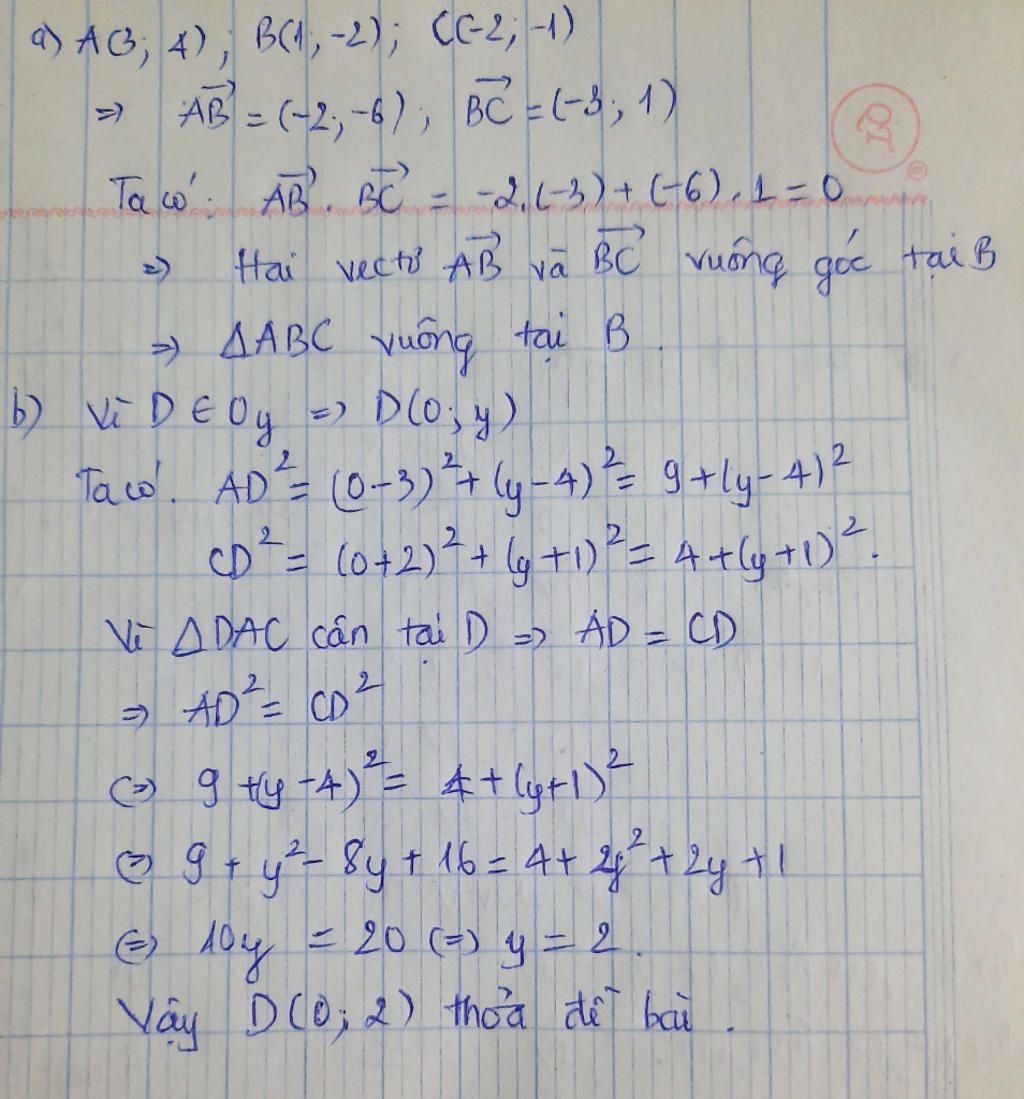 a) A(3; 4); B(1; -2); C(-2; -1)
=> AB→ = (-2; -6); BC→ = (-3; 1)
Ta có: AB→ . BC→ = -2.(-3) + (-6).1 = 0
=> Hai vectơ AB→ và BC→ vuông góc tại B
=> ΔABC vuông tại B.
b) Vì D ∈ Oy => D(0; y)
Ta có. AD² = (0-3)² + (y-4)² = 9 + (y-4)²
CD² = (0+2)² + (y+1)² = 4 + (y+1)².
Vì ΔDAC cân tại D => AD = CD
=> AD² = CD²
<=> 9 + (y-4)² = 4 + (y+1)²
<=> 9 + y² - 8y + 16 = 4 + y² + 2y + 1
<=> 10y = 20 <=> y = 2.
Vậy D(0; 2) thỏa đề bài.